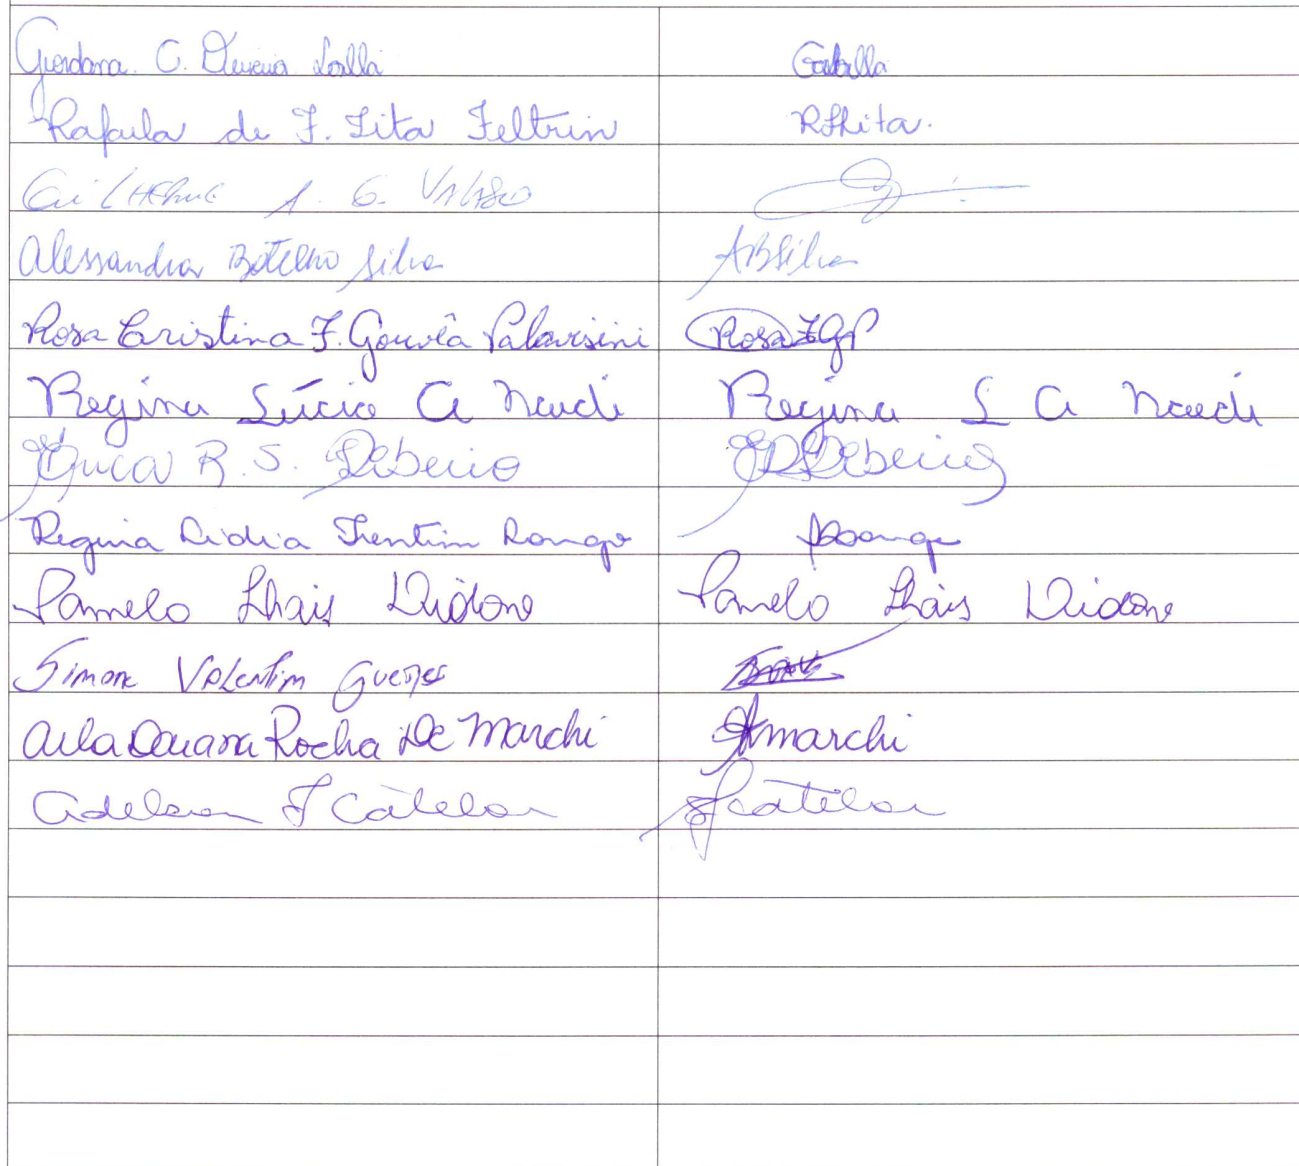 Giordana C. Oliveira Lalla GCOlalla
Rafaela de F. Fita Feltrin RFFita.
Guilherme A. G. Valasco
Alessandra Botelho Silva ABSilva
Rosa Cristina F. Gouvêa Palavisini Rosa FGP
Regina Lúcia A Nardi Regina L A Nardi
R. S. Ribeiro
Regina Lidia Trentim Rongo
Pamela Thais Vidone Pamela Thais Vidone
Simone Valentim Guedes
Rocha De Marchi Marchi
Adelson F Catelan FCatelan